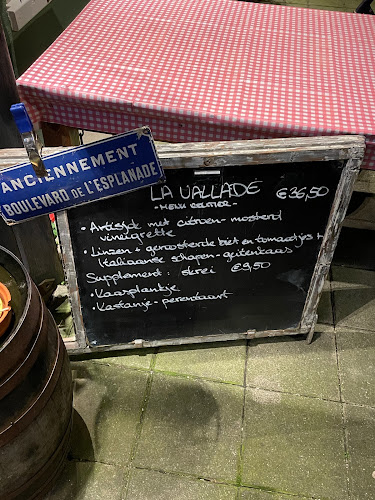 ANCIENNEMENT
BOULEVARD DE L'ESPLANADE
LA VALLADE €36,50
- MENU
• Artisjok met citroen-mosterd
vinaigrette
• Linzen + geroosterde biet en tomaatjes +
Italiaanse schapen-geitenkaas
Supplement: skrei €9,50
• Kaasplankje
• Kastanje-perentaart